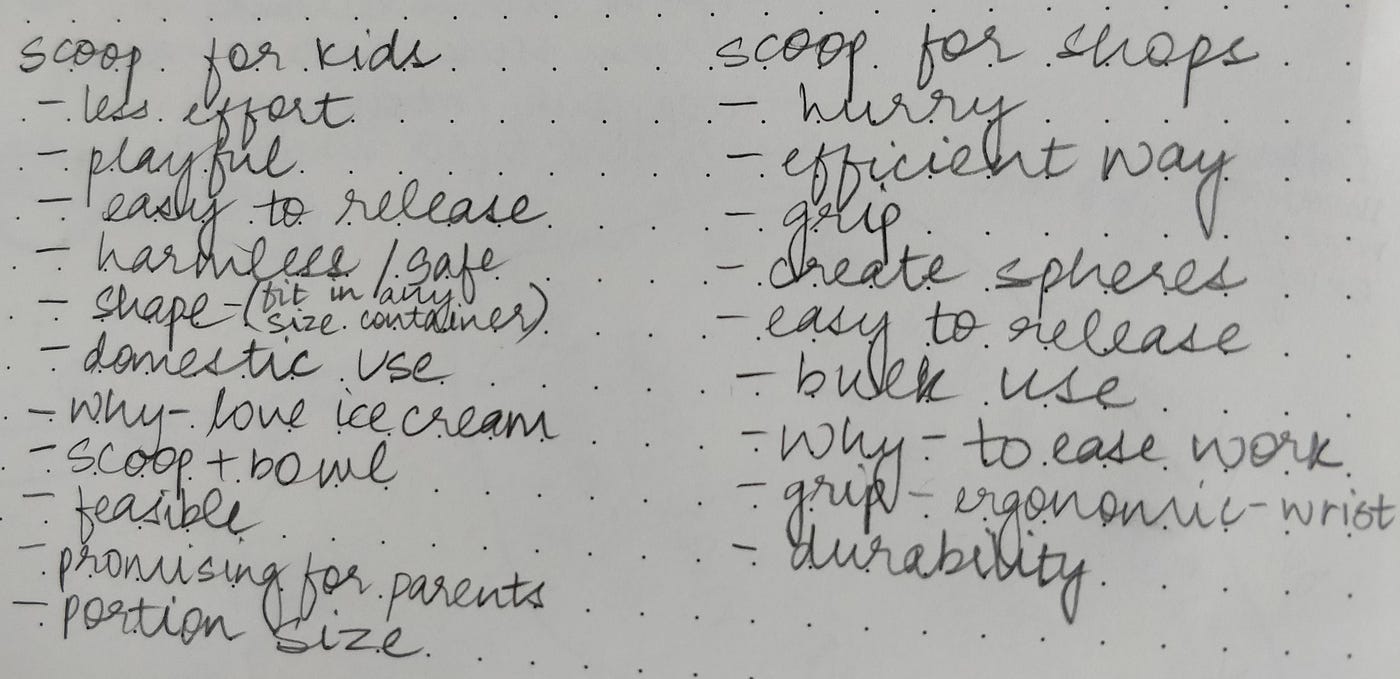 scoop for kids
- less effort
- playful
- easy to release
- harmless / safe
- shape - (fit in any
size container)
- domestic use
- why - love ice cream
- scoop + bowl
- feasible
- promising for parents
- portion size
scoop for shops
- hurry
- efficient way
- grip
- create spheres
- easy to release
- bulk use
- why - to ease work
- grip - ergonomic - wrist
- durability